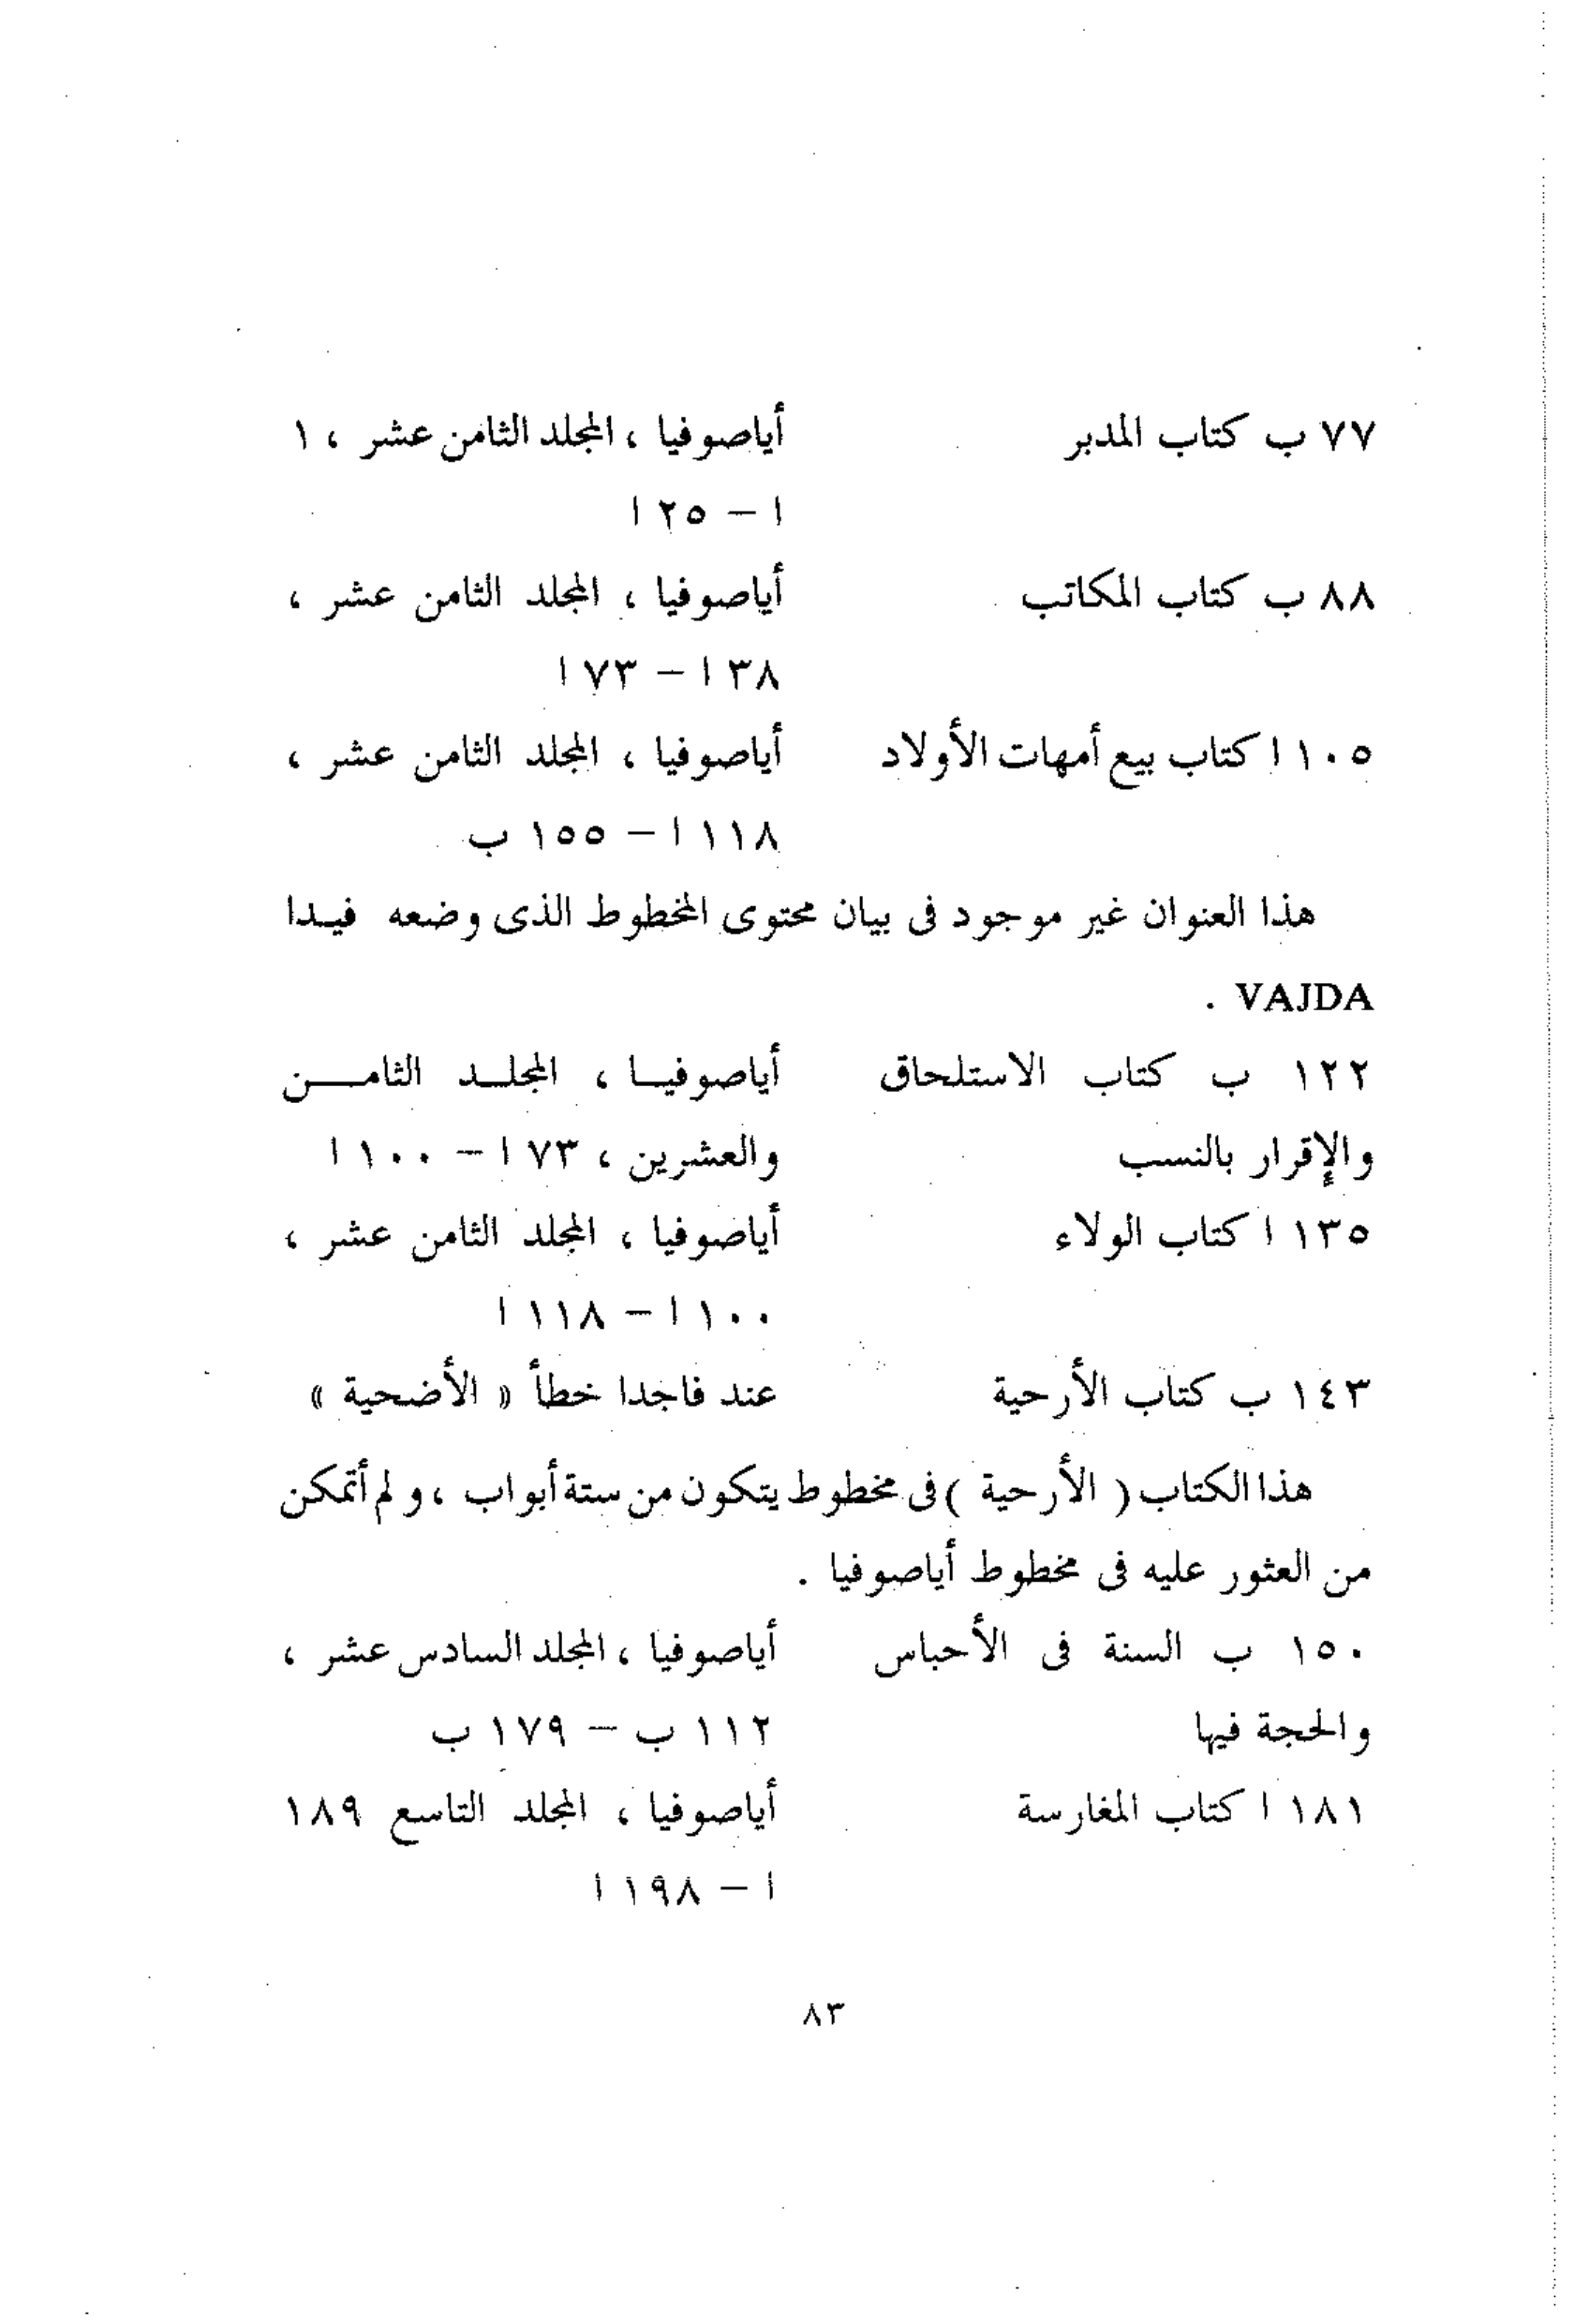 ٧٧ ب كتاب المدبر أياصوفيا ، المجلد الثامن عشر ، ١
ا – ٢٥ ا
٨٨ ب كتاب المكاتب أياصوفيا ، المجلد الثامن عشر ،
٣٨ ا – ٧٣ ا
١٠٥ ا كتاب بيع أمهات الأولاد أياصوفيا ، المجلد الثامن عشر ،
١١٨ ا – ١٥٥ ب
هذا العنوان غير موجود فى بيان محتوى المخطوط الذى وضعه فيدا
VAJDA .
١٢٢ ب كتاب الاستلحاق أياصوفيا ، المجلد الثامن
والإقرار بالنسب والعشرين ، ٧٣ ا – ١٠٠ ا
١٣٥ ا كتاب الولاء أياصوفيا ، المجلد الثامن عشر ،
١٠٠ ا – ١١٨ ا
١٤٣ ب كتاب الأرحية عند فاجدا خطأ « الأضحية »
هذا الكتاب ( الأرحية ) فى مخطوط يتكون من ستة أبواب ، ولم أتمكن
من العثور عليه فى مخطوط أياصوفيا .
١٥٠ ب السنة فى الأحباس أياصوفيا ، المجلد السادس عشر ،
والحجة فيها ١١٢ ب – ١٧٩ ب
١٨١ ا كتاب المغارسة أياصوفيا ، المجلد التاسع ١٨٩
ا – ١٩٨ ا
٨٣